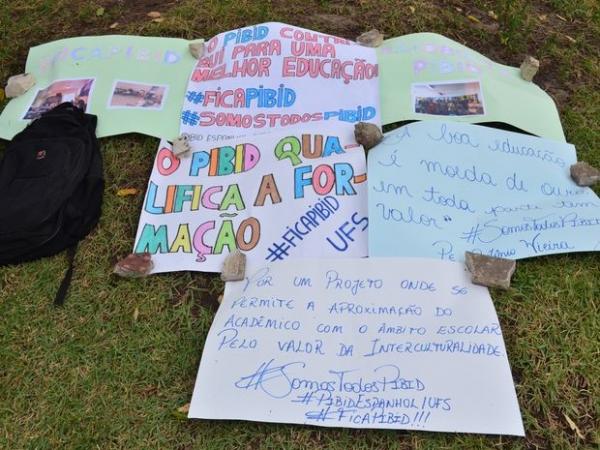 FICA PIBID
O PIBID CONTRI
BUI PARA UMA
MELHOR EDUCAÇÃO!
#FICAPIBID
#SOMOSTODOSPIBID
PIBID
PIBID ESPANHOL
O PIBID QUA-
LIFICA A FOR-
MAÇÃO
#FICAPIBID
UFS
"A boa educação
é moeda de ouro
em toda parte tem
valor"
#SomosTodosPIBID
Pe. Antônio Vieira
POR UM PROJETO ONDE SE
PERMITE A APROXIMAÇÃO DO
ACADÊMICO COM O ÂMBITO ESCOLAR
PELO VALOR DA INTERCULTURALIDADE.
#SOMOSTODOSPIBID
#PIBIDESPANHOL/UFS
#FICAPIBID!!!